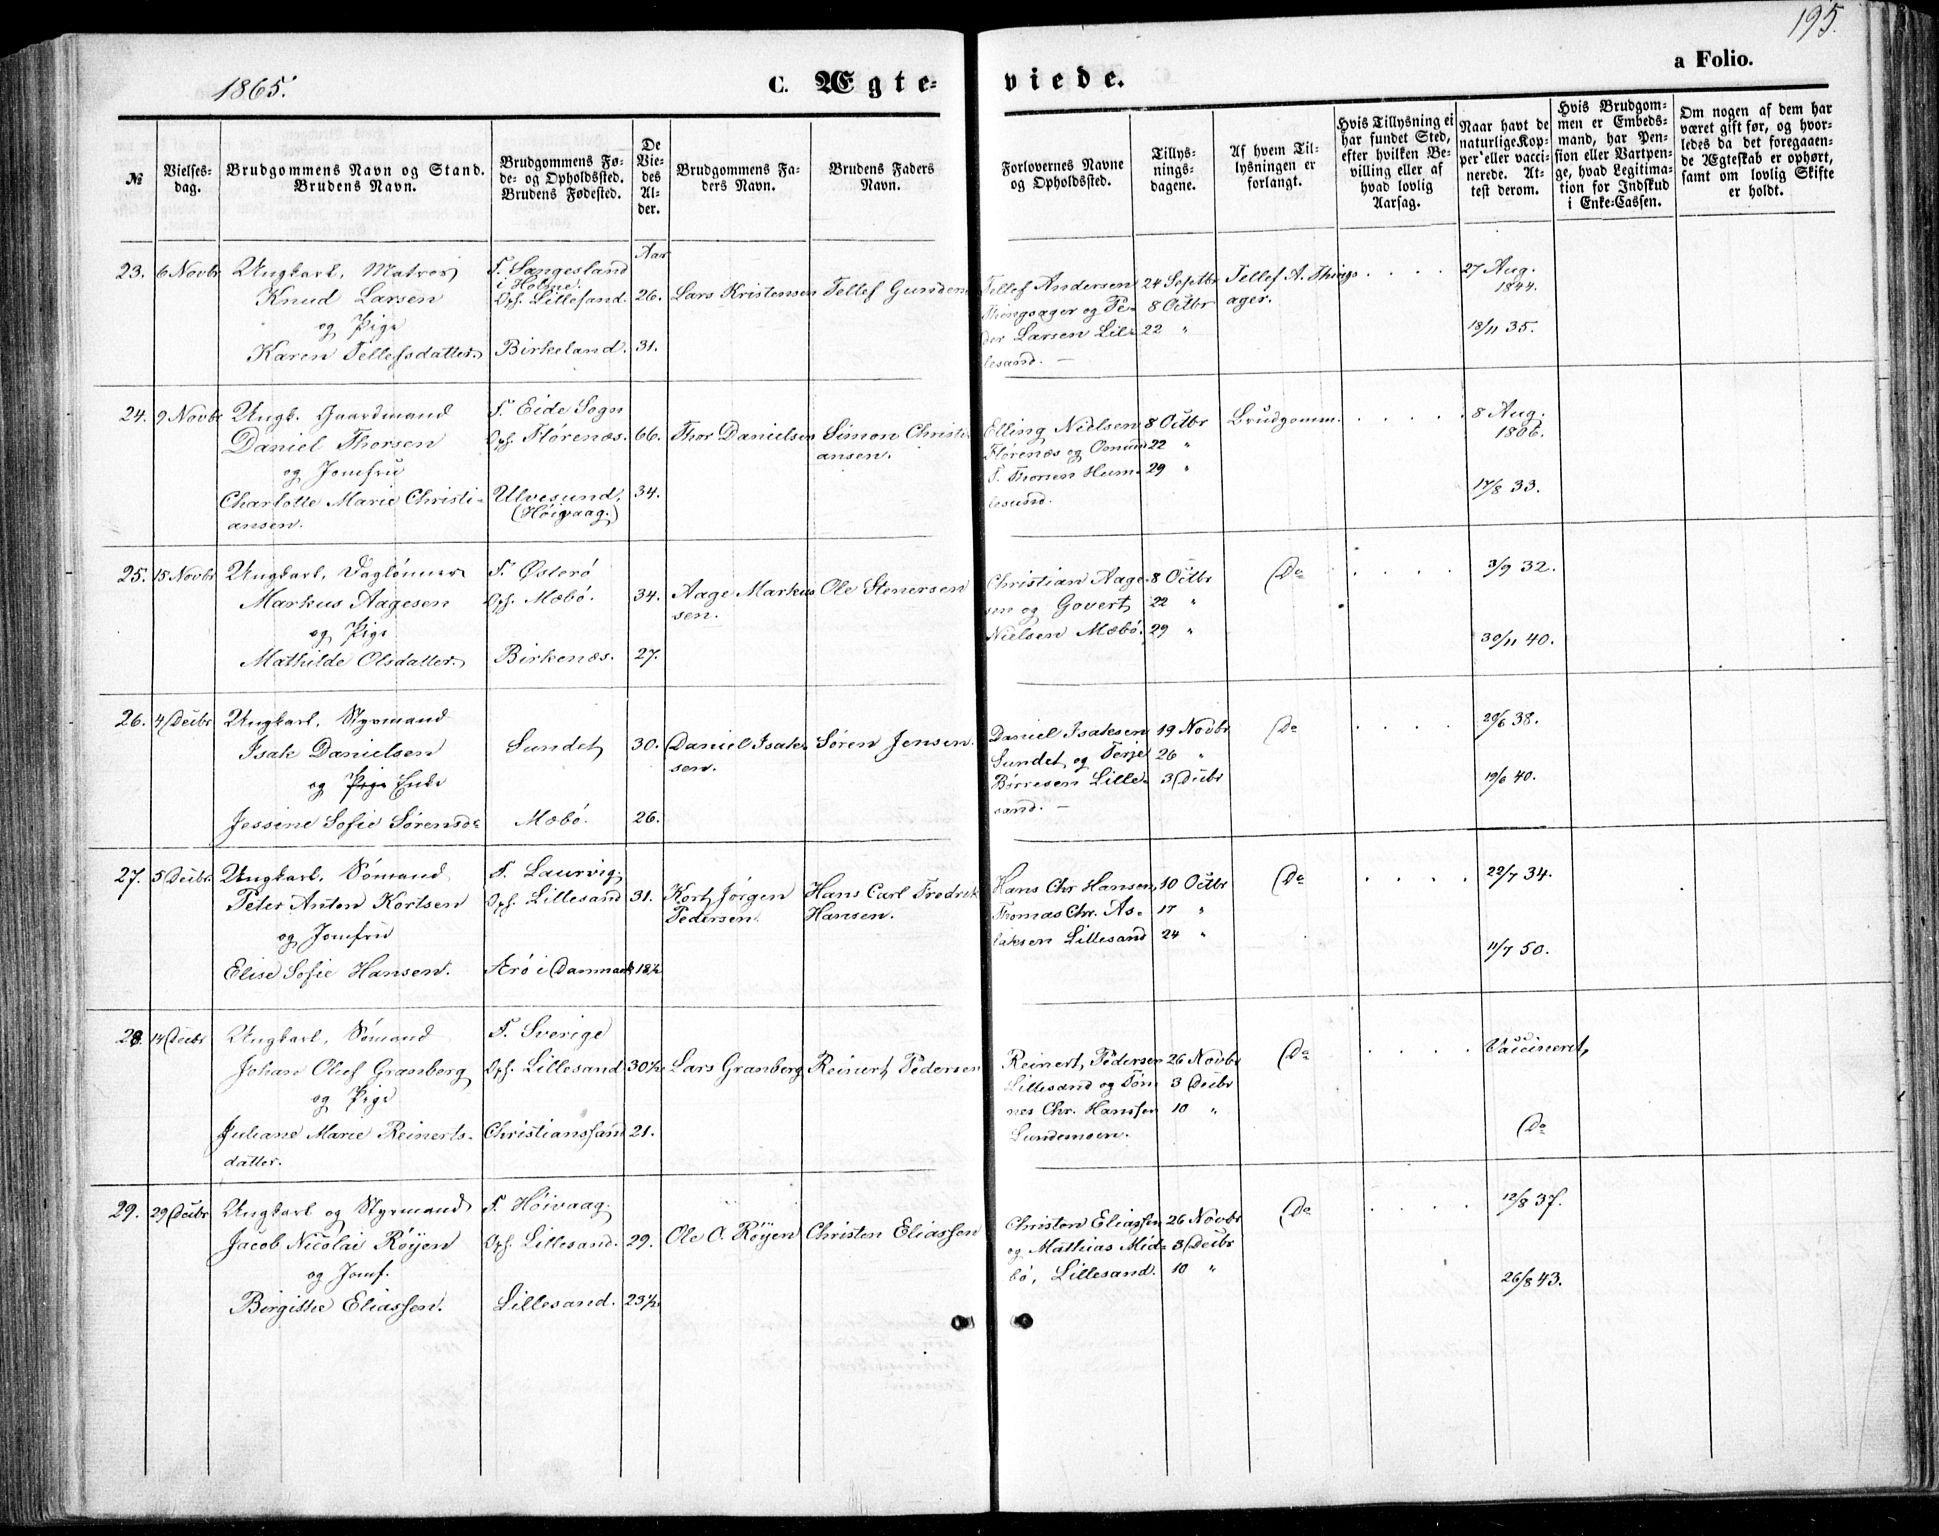 195.
1865.
C. Ægte-
viede.
a Folio.
№
Vielses-
dag.
Brudgommens Navn og Stand.
Brudens Navn.
Brudgommens Fø-
de- og Opholdssted.
Brudens Fødested.
De
Vie-
des
Al-
der.
Brudgommens Fa-
ders Navn.
Brudens Faders
Navn.
Forlovernes Navne
og Opholdssted.
Tillys-
nings-
dagene.
Af hvem Til-
lysningen er
forlangt.
Hvis Tillysning ei
har fundet Sted,
efter hvilken Be-
villing eller af
hvad lovlig
Aarsag.
Naar havt de
naturlige Kop-
per eller vacci-
nerede. At-
test derom.
Hvis Brudgom-
men er Embeds-
mand, har Pen-
sion eller Vartpen-
ge, hvad Legitima-
tion for Indskud
i Enke-Cassen.
Om nogen af dem har
været gift før, og hvor-
ledes da det foregaaen-
de Ægteskab er ophørt,
samt om lovlig Skifte
er holdt.
Aar
23. 6 Novbr Ungkarl, Matros
Knud Larsen
og Pige
Karen Tellefsdatter.
F. Sangesland
i Holme.
Oph. Lillesand.
Birkeland.
26.
31.
Lars Kristensen
Tellef Gunders
Tellef Andersen
Thingsager og Pe-
der Larsen Lil-
lesand. —
24 Septbr
8 Octbr
22 "
Tellef A. Things
ager.
27 Aug.
1844.
13/11 35.
24. 9 Novbr Ungk. Gaardmand
Daniel Thorsen
og Jomfru
Charlotte Marie Christi-
ansen.
F. Eide Sogn
Oph. Flørenæs.
Ulvesund.
(Høivaag.)
66.
34.
Thor Danielsen
Simon Christi-
ansen.
Elling Nielsen
Flørenæs og Omund
T. Thorsen Hum-
lesund.
8 Octbr
22 "
29 "
Brudgomm.
8 Aug.
1806.
17/8 33.
25. 15 Novbr Ungkarl, Daglønner
Markus Aagesen
og Pige
Mathilde Olsdatter.
F. Østerø
Oph. Mæbø.
Birkenæs.
34.
27.
Aage Markus
sen.
Ole Stenersen
Christian Aage-
sen og Govert
Nielsen Mæbø.
8 Octbr
22 "
29 "
Do
3/9 32.
30/11 40.
26. 4 Decbr Ungkarl, Styrmand
Isak Danielsen
og Pige Enke
Jessine Sofie Sørensdr
Sundet
Mæbø.
30.
26.
Daniel Isaks-
sen.
Søren Jensen.
Daniel Isaksen
Sundet og Terje
Børresen Lille-
sand. —
19 Novbr
26 "
3 Decbr
Do
29/6 38.
19/6 40.
27. 5 Decbr. Ungkarl, Sømand
Peter Anton Kortsen
og Jomfru
Elise Sofie Hansen.
F. Laurvig.
Oph. Lillesand
Ærø i Danmark
31.
18½
Kort Jørgen
Pedersen.
Hans Carl Fredrik
Hansen.
Hans Chr Hansen,
Thomas Chr. As-
laksen Lillesand
10 Octbr
17 "
24 "
Do
22/7 34.
11/7 50.
28. 14 Decbr Ungkarl, Sømand
Johan Oluf Granberg
og Pige
Juliane Marie Reinerts-
datter.
F. Sverige
Oph. Lillesand
Christianssand
30½
21.
Lars Granberg
Reinert Pedersen
Reinert Pedersen
Lillesand og Tøn
nes Chr. Hanssen
Sundemoen.
26 Novbr
3 Decbr
10 "
Do
Vaccineret,
Do
29. 29 Decbr Ungkarl og Styrmand
Jacob Nicolai Røyen
og Jomf.
Birgitte Eliassen.
F. Høivaag.
Oph. Lillesand.
Lillesand.
29.
23½
Ole O. Røyen
Christen Eliassen
Christen Eliassen
og Mathias Mid-
bø, Lillesand.
26 Novbr
3 Decbr
10 "
Do
12/8 37.
26/8 43.